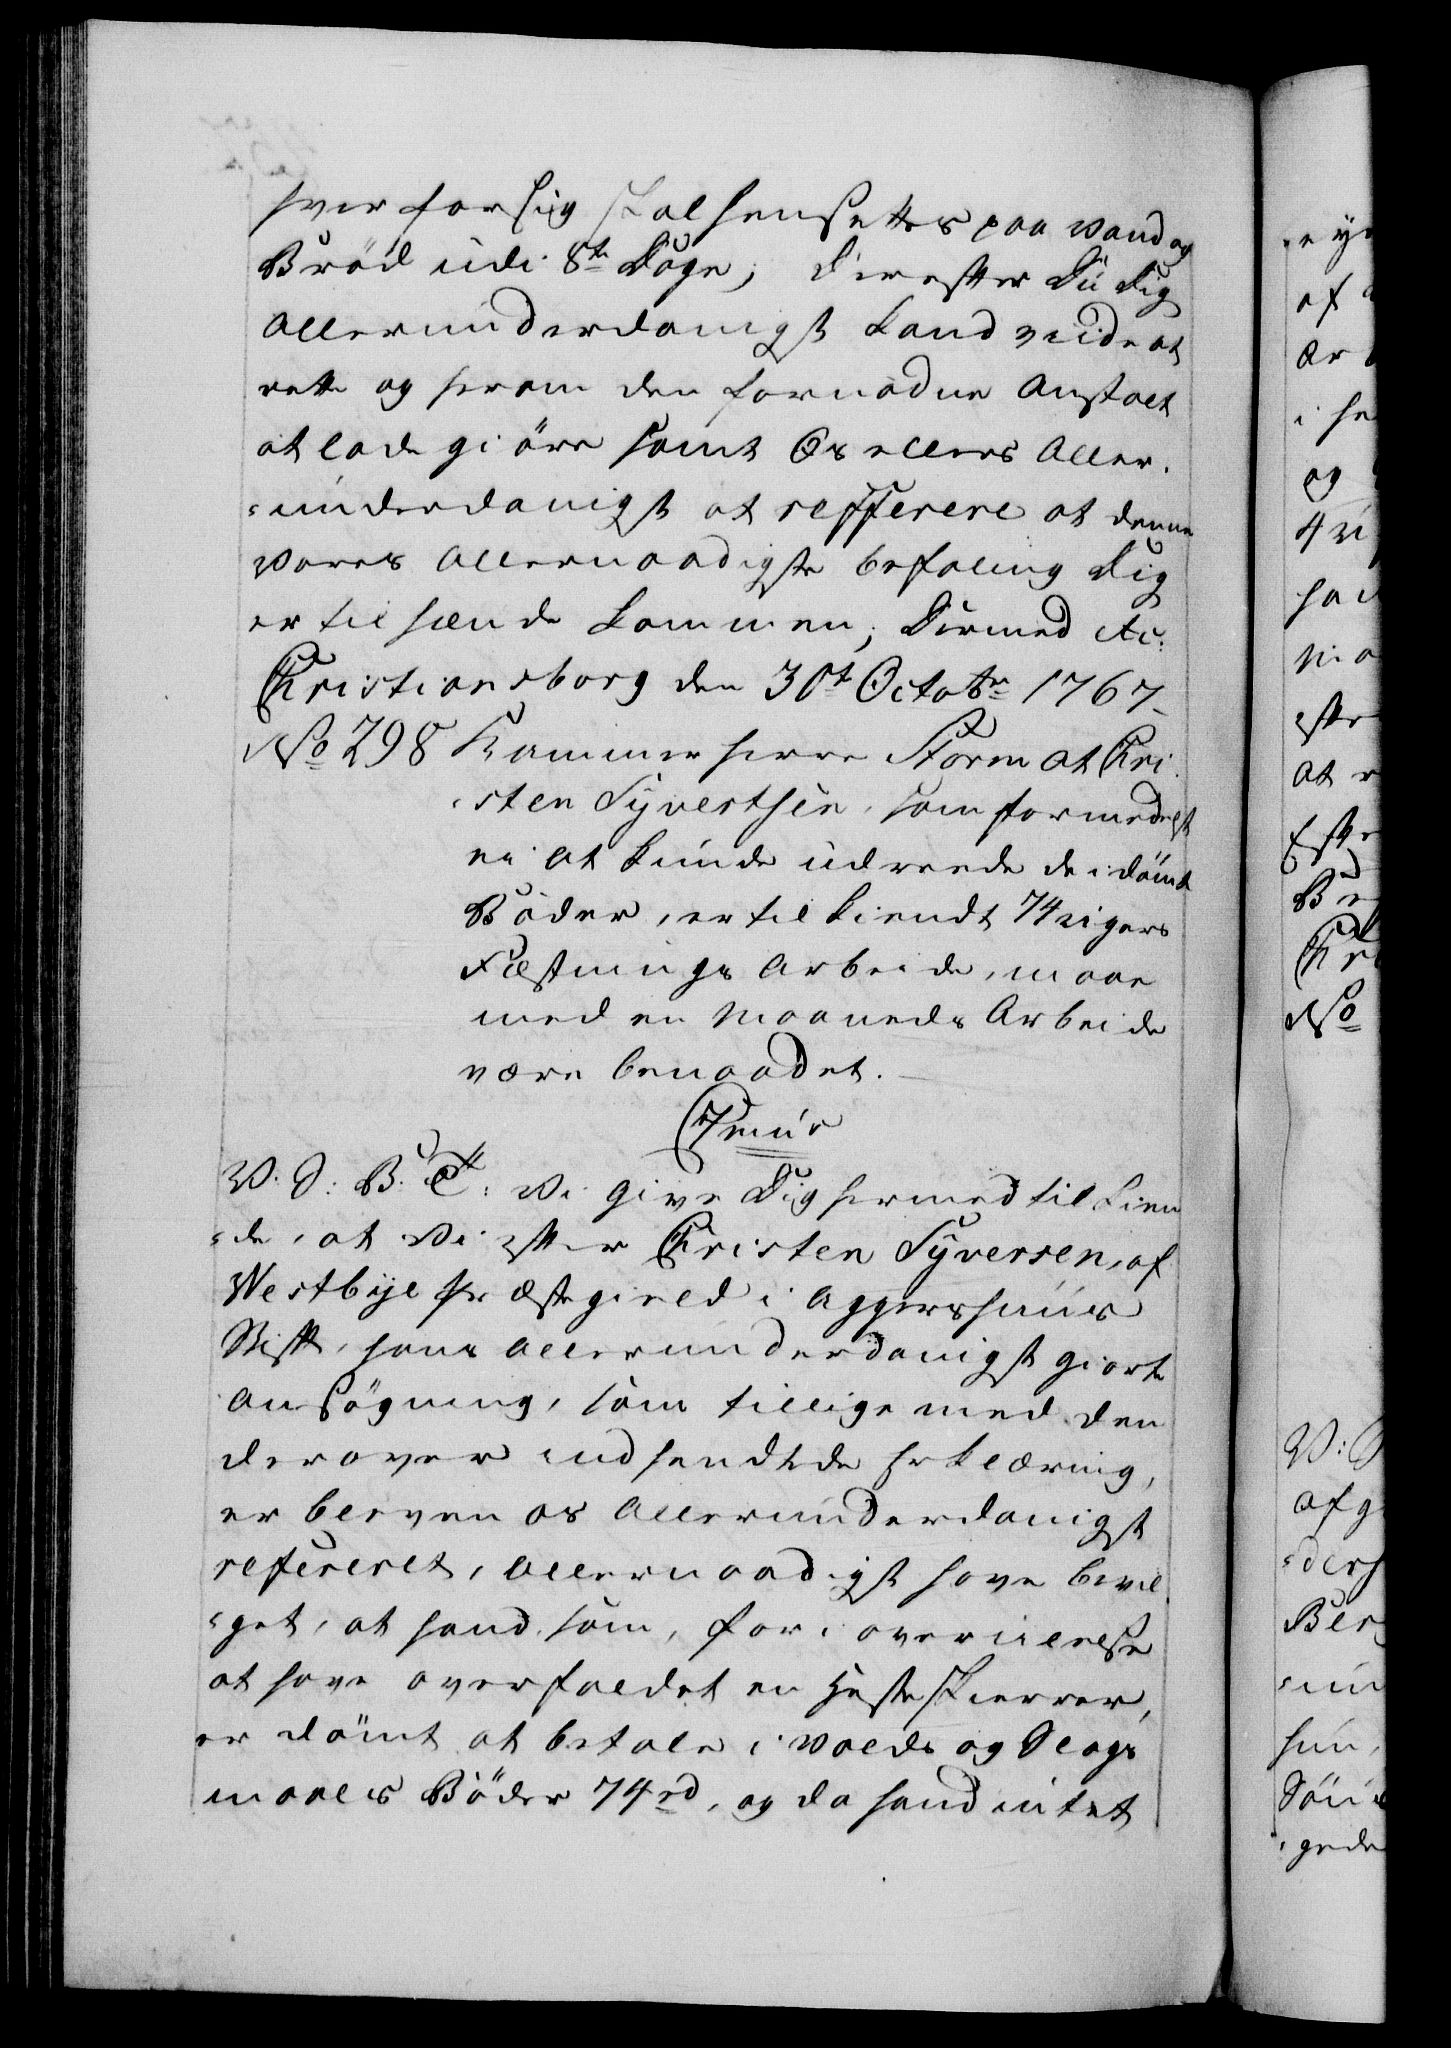 hver for sig skal hensettes paa vand og
Brød udi 8te Dage; Derefter Du Dig
allerunderdanigst kand viide at
rette og herom den fornødne Anstalt
at lade giøre samt Os ellers Aller-
-underdanigst at refferere at denne
vores allernaadigste befaling Dig
er tilhænde kommen; Dermed etc:
Christiansborg den 30t Octobr 1767.
No 298 Kammerherre Storm at Chri-
-sten Syvertsen, som formedelst
ei at kunde udreede de idømt
Bøder, er tilkiendt 74 ugers
Fæstnings Arbeide, maae
med en Maaneds Arbeide
være benaadet.
V: S: B: T: Vi give Dig hermed tilkien
-de, at Vi efter Christen Syversen, af
Westbye Præstegield i Aggershuus
Stift, hans allerunderdanigst giorte
Ansøgning, som tillige med den
derover indsendte de Erklæring,
er bleven os allerunderdanigst
refereret, allernaadigst have bevil-
-get, at hand, som, for i overiilelse
at have overfaldet en Hesteskierer,
er dømt at betale i Volds og Slags
maals Bøder 74 rd, og da hand intet